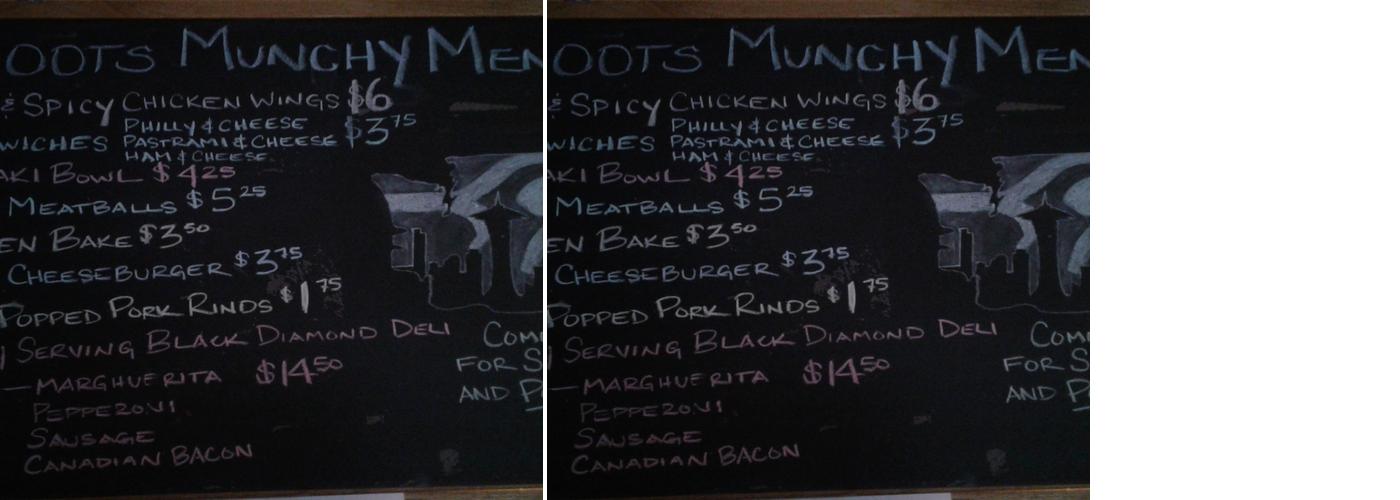 OOTS MUNCHY MEN
& SPICY CHICKEN WINGS $6
WICHES PHILLY & CHEESE $3.75
PASTRAMI & CHEESE
HAM & CHEESE
AKI BOWL $4.25
MEATBALLS $5.25
EN BAKE $3.50
CHEESEBURGER $3.75
POPPED PORK RINDS $1.75
SERVING BLACK DIAMOND DELI
— MARGHUERITA $14.50
PEPPERONI
SAUSAGE
CANADIAN BACON
COM
FOR S
AND P
OOTS MUNCHY MEN
& SPICY CHICKEN WINGS $6
WICHES PHILLY & CHEESE $3.75
PASTRAMI & CHEESE
HAM & CHEESE
AKI BOWL $4.25
MEATBALLS $5.25
EN BAKE $3.50
CHEESEBURGER $3.75
POPPED PORK RINDS $1.75
SERVING BLACK DIAMOND DELI
— MARGHUERITA $14.50
PEPPERONI
SAUSAGE
CANADIAN BACON
COM
FOR S
AND P